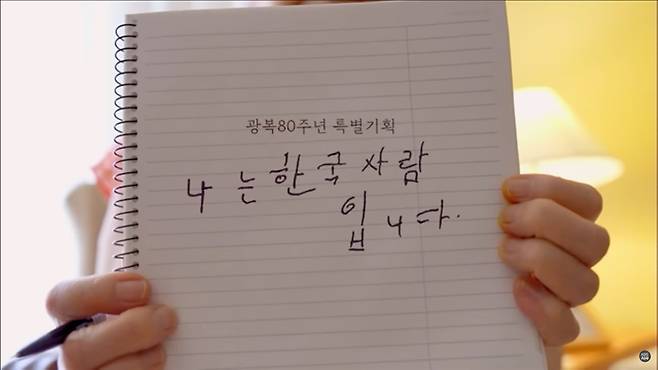 광복80주년 특별기획
나 는 한국사람
입니다.